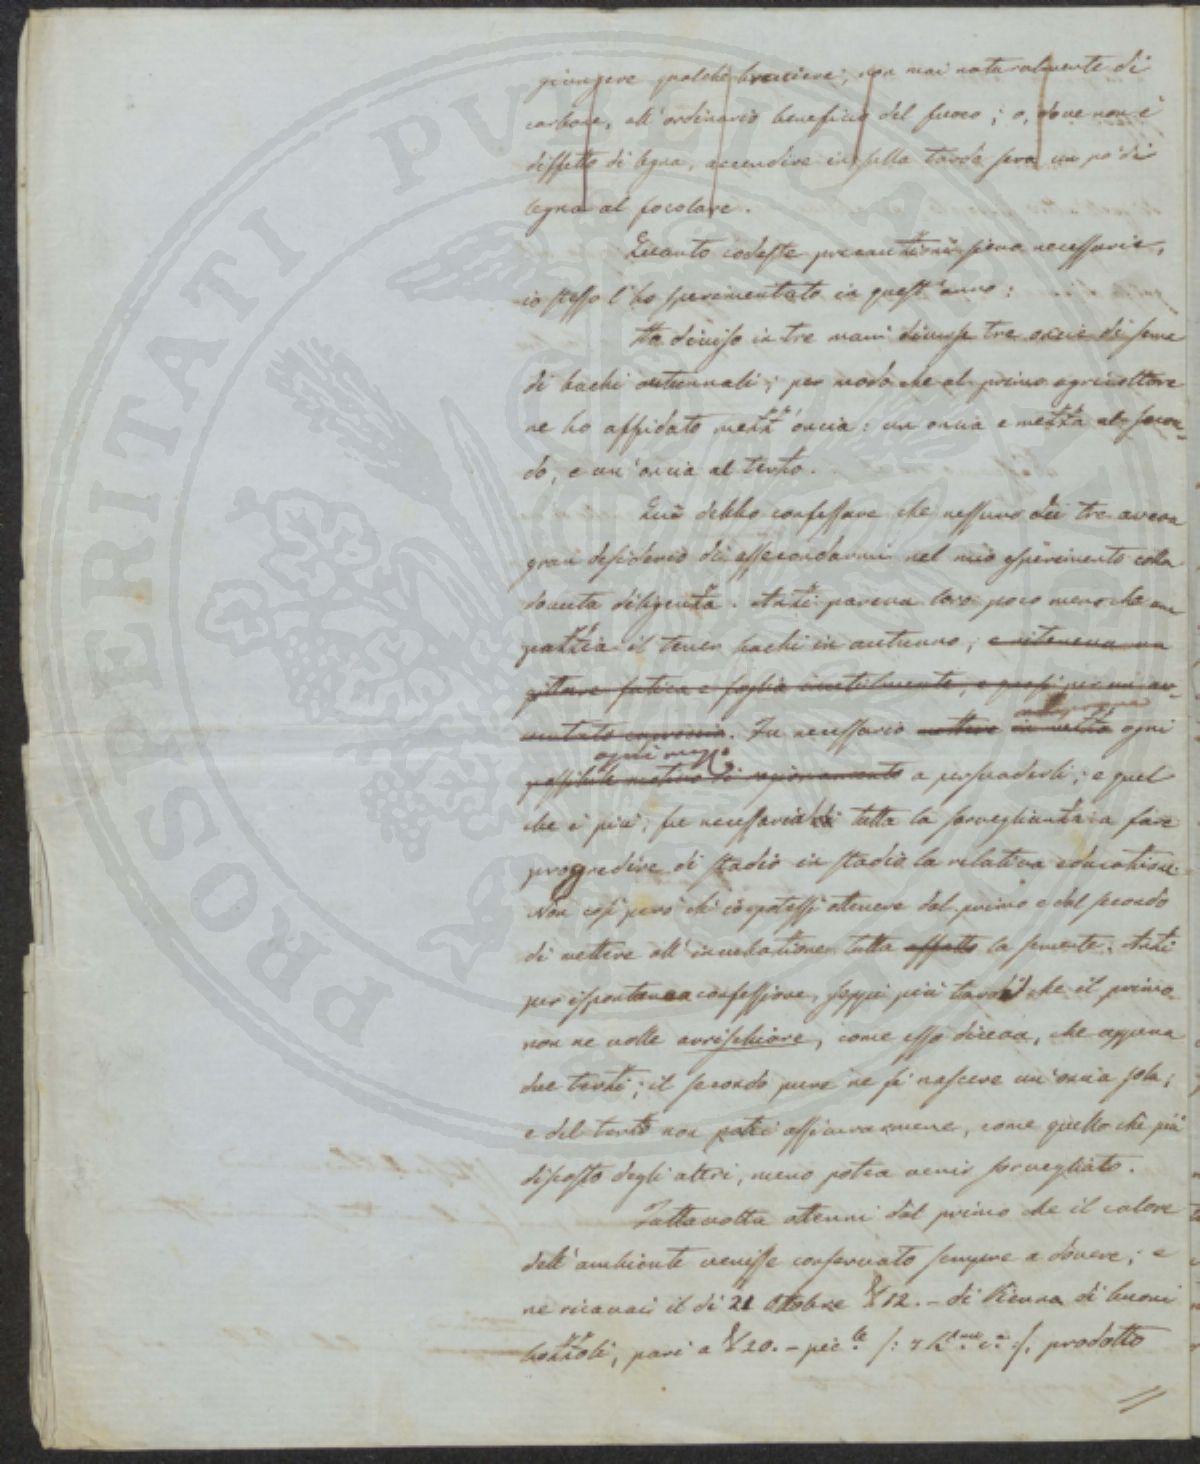 giungere qualche braciere, non mai naturalmente di
carbone, all'ordinario beneficio del fuoco; o, dove non è
diffetto di legna, accendere in sulla tarda sera un po' di
legna al focolare.
Quanto codeste precauzioni sieno necessarie,
io stesso l'ho sperimentato in quest'anno:
Ho diviso in tre mani diverse tre oncie di seme
di bachi autunnali; per modo che al primo agricoltore
ne ho affidato mezz'oncia: un oncia e mezza al secon-
do, e un'oncia al terzo.
Quì debbo confessare che nessuno dei tre aveva
gran desiderio di assecondarmi nel mio esperimento colla
dovuta diligenza. Anzi pareva loro poco meno che una
pazzia il tener bachi in autunno; e riteneva un
gittare fatica e foglia inutilmente, e quasi per mi av-
ventato capriccio. Fu necessario mettere in mezzo ogni
ogni mezzo
possibile motivo di ragionamento a persuaderli; e quel
che è più, fu necessaria tutta la sorveglianza a fare
progredire di stadio in stadio la relativa educazione.
Non così però ch'io potessi ottenere dal primo e dal secondo
di mettere all'incubazione tutta affatto la semente. Anzi
per ispontanea confessione, seppi più tardi che il primo
non ne volle arrischiare, come esso diceva, che appena
due terzi; il secondo pure ne fè nascere un'oncia sola;
e del terzo non potei assicurarmene, come quello che più
disposto degli altri, meno potea venir sorvegliato.
Tuttavolta ottenni dal primo che il calore
dell'ambiente venisse conservato sempre a dovere; e
ne ricavai il dì 21 Ottobre 12. – di Vienna di buoni
bozzoli, pari a 20. – prodotto